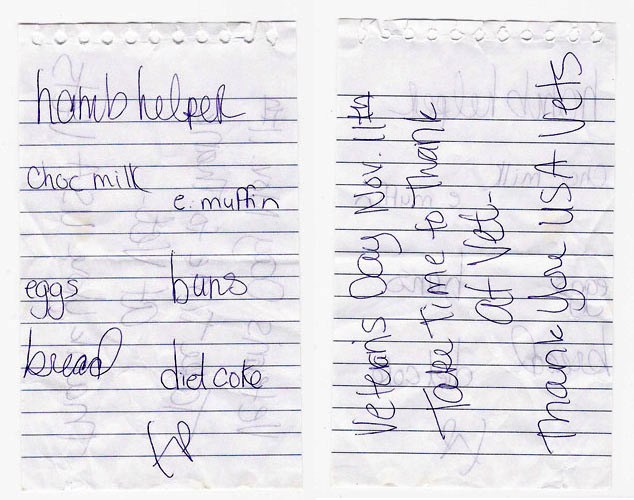 hamb helper
choc milk
e. muffin
eggs
buns
bread
diet coke
TP
Veteran's Day Nov. 11th
Take Time to Thank
at Vet.
Thank You USA Vets